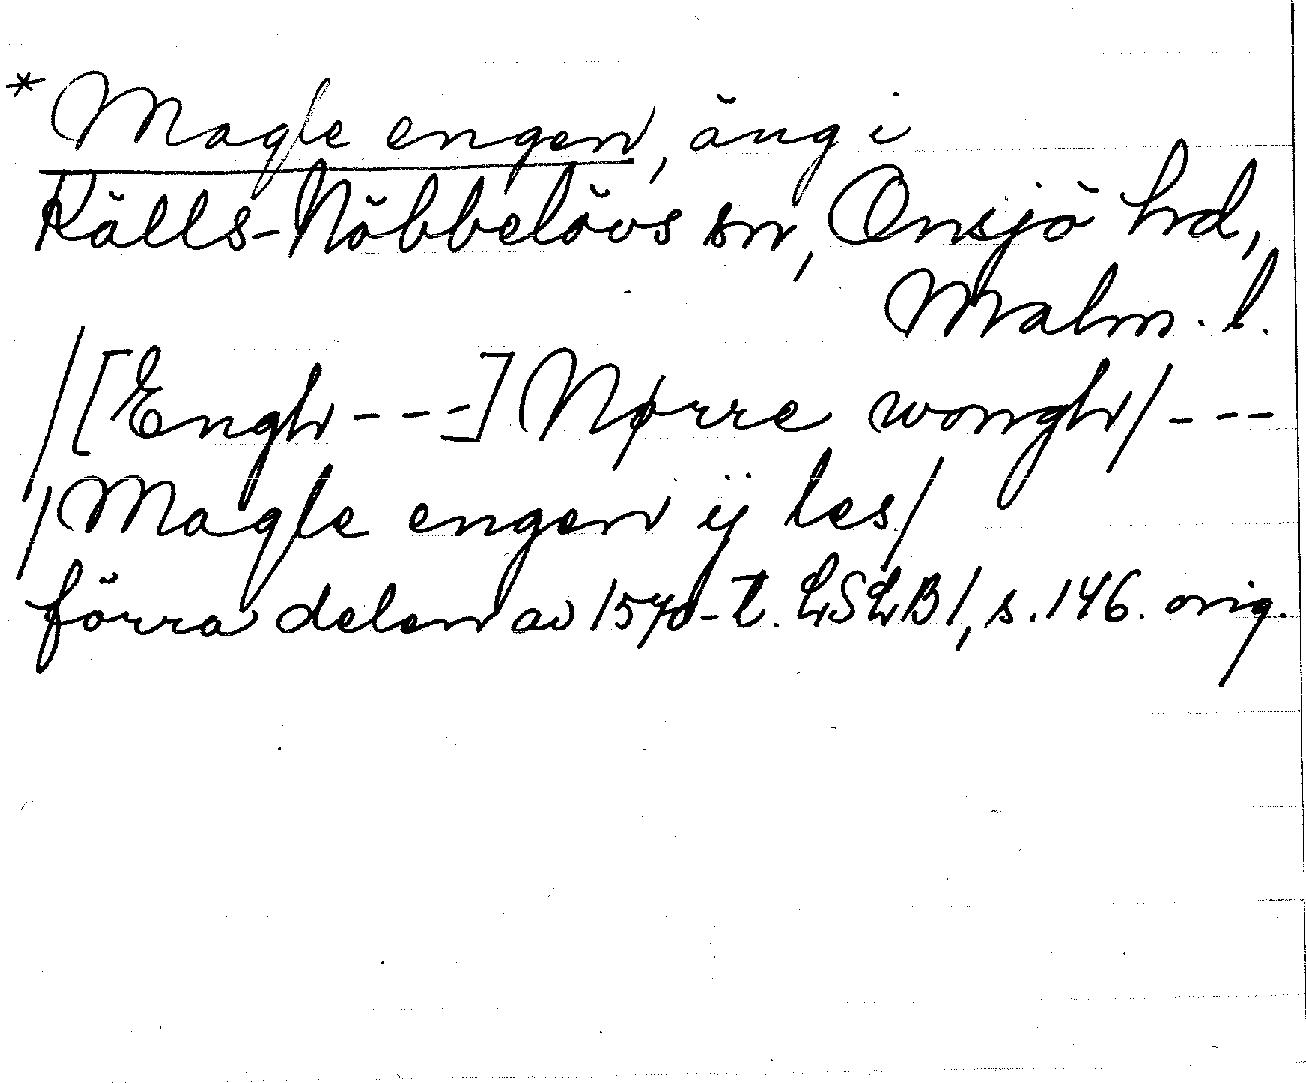 * Magle engen, äng i
Källs-Nöbbelövs sn, Onsjö hd,
Malm. l.
/[Engh ---] Nørre wongh/ ---
/Magle engen ij les/
förra delen av 1570-t. LSLB 1, s. 146. orig.